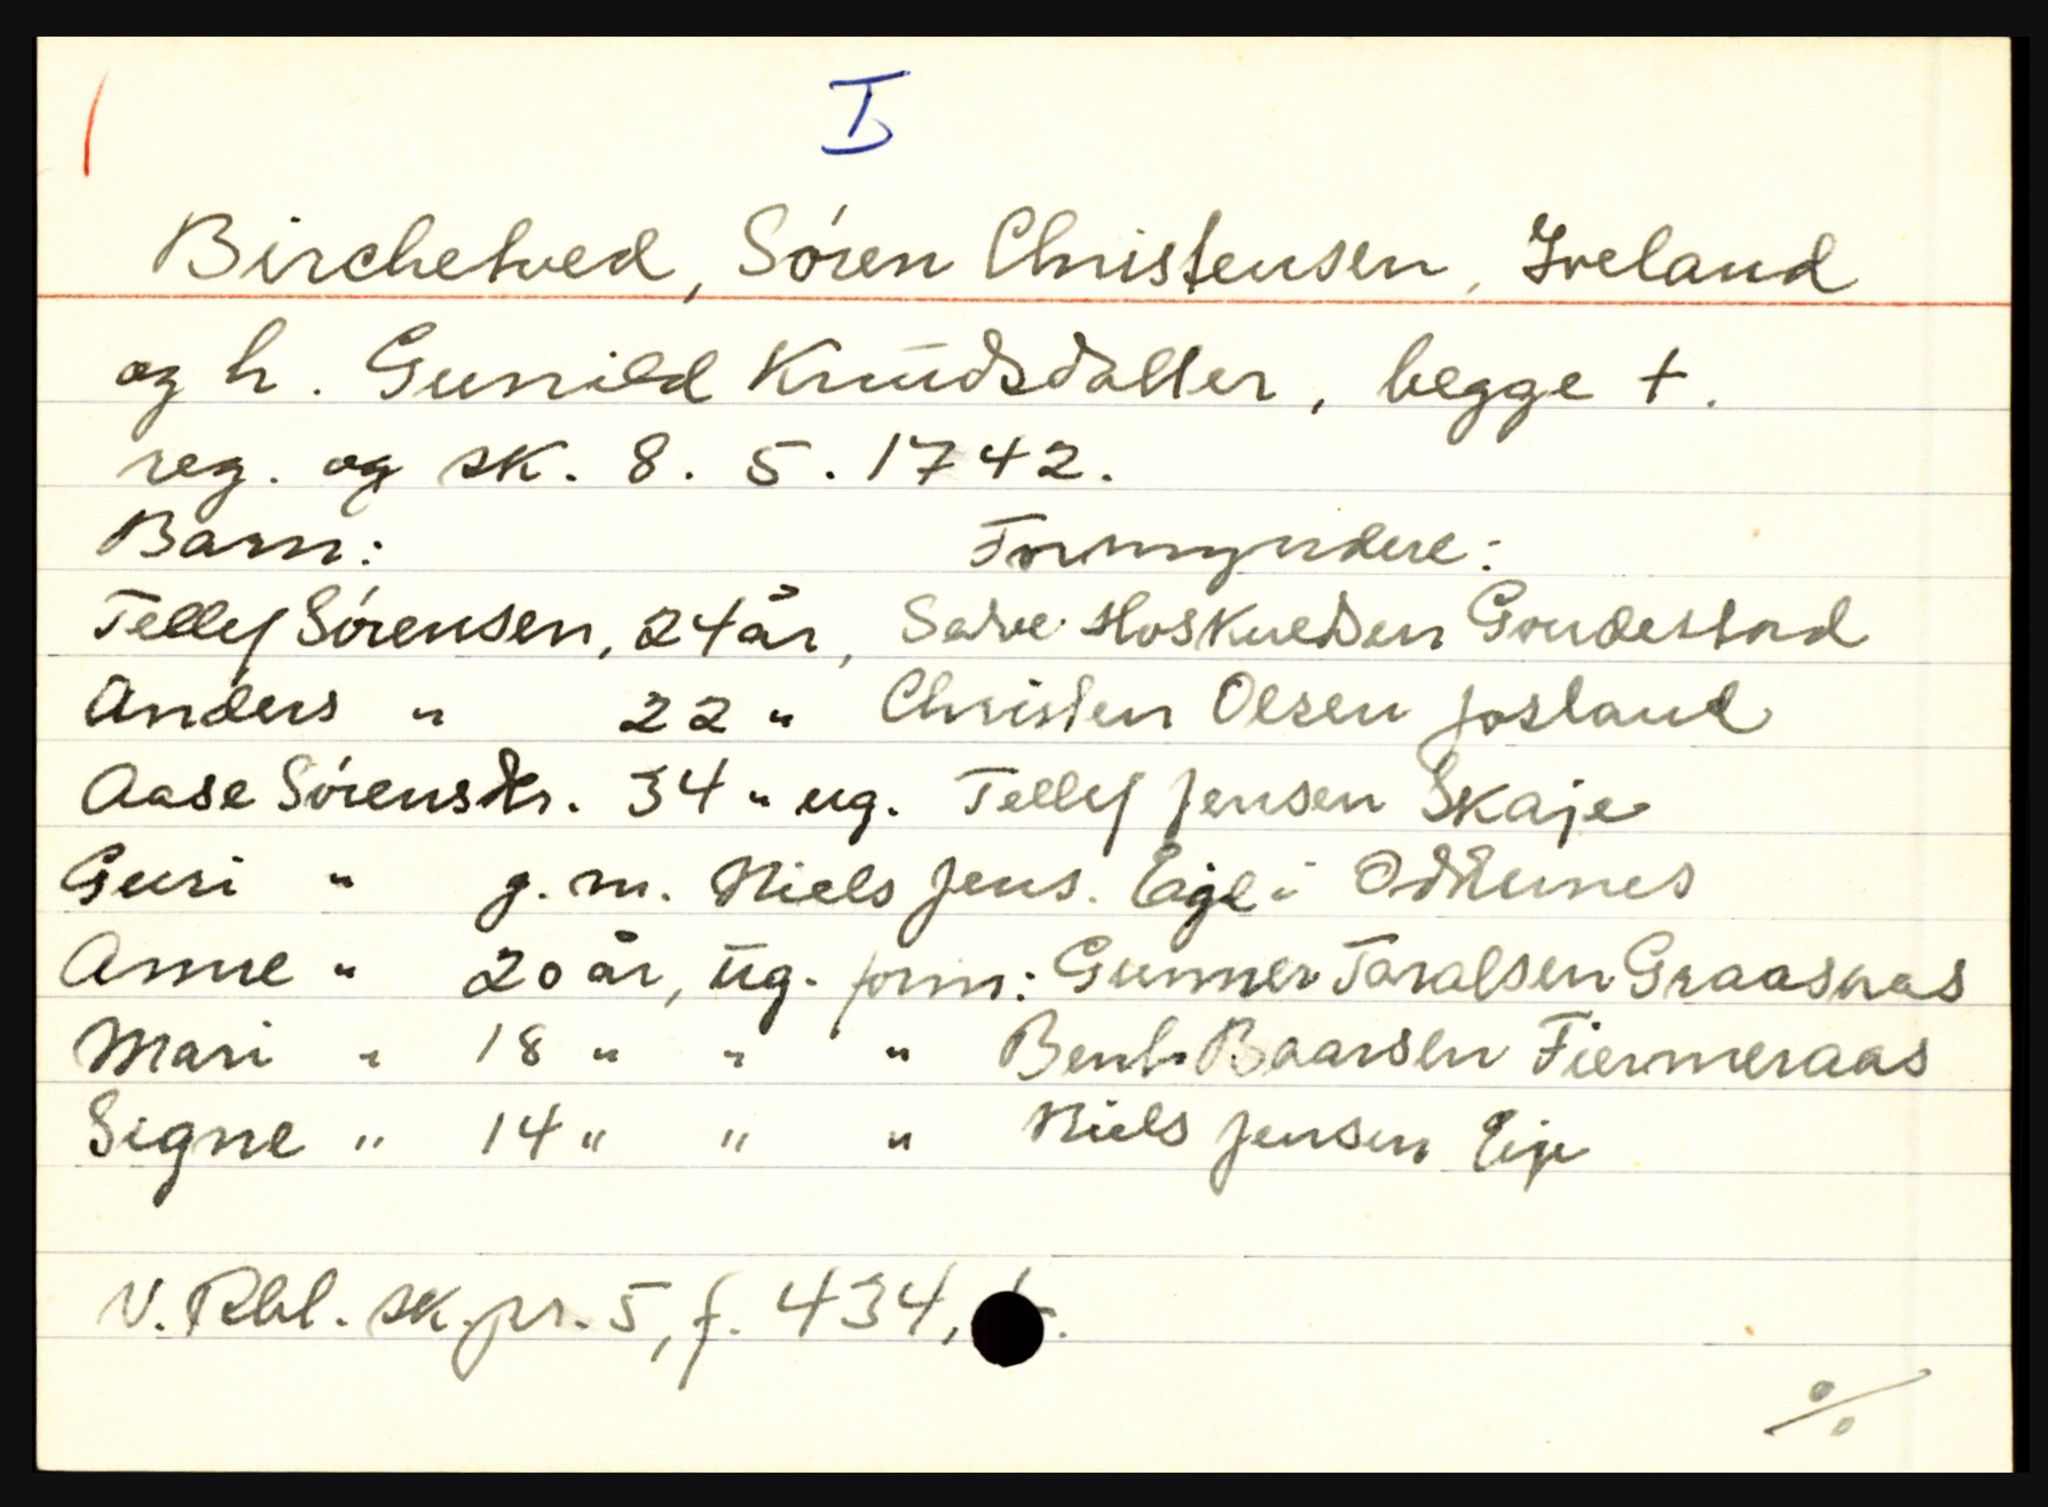 I
Birchetved, Sören Christensen, Iveland
og h. Gunild Knudsdatter, begge +.
reg. og sk. 8. 5. 1742.
Barn: Formyndere:
Tellef Sörensen, 24 år, Salve Hoskuedsen Gondestad
Anders " 22 " Christen Olsen Josland
Aase Sörensdtr. 34 " ug. Tellef Jensen Skaje
Guri " g. m. Niels Jens. Eige i Oddernes
Anne " 20 år, ug. form: Gunner Taralsen Graasaas
Mari " 18 " " " Bent Baarsen Fiermeraas
Signe " 14 " " " Niels Jensen Eije
N. Rbl. sk.pr. 5, f. 434,
%